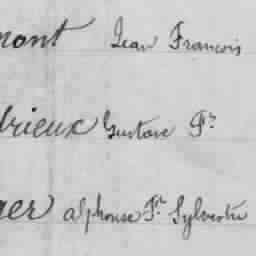 mont Jean François
drieux Gustave Fr.
ger alphonse Fr. Sylvestre